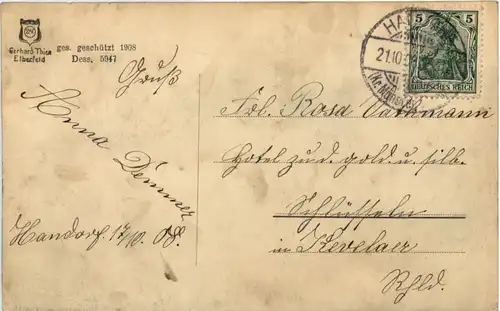 Gerhard Thien
Elberfeld
ges. geschützt 1908
Dess. 5947
Gruß
Anna Demmer
Handorf 17/10. 08.
5 5
DEUTSCHES REICH
HA
21.10
Frl. Rosa Vathmann
Hotel zu d. gold. u. silb.
Schlüsseln
in Kevelaer
Rhld.